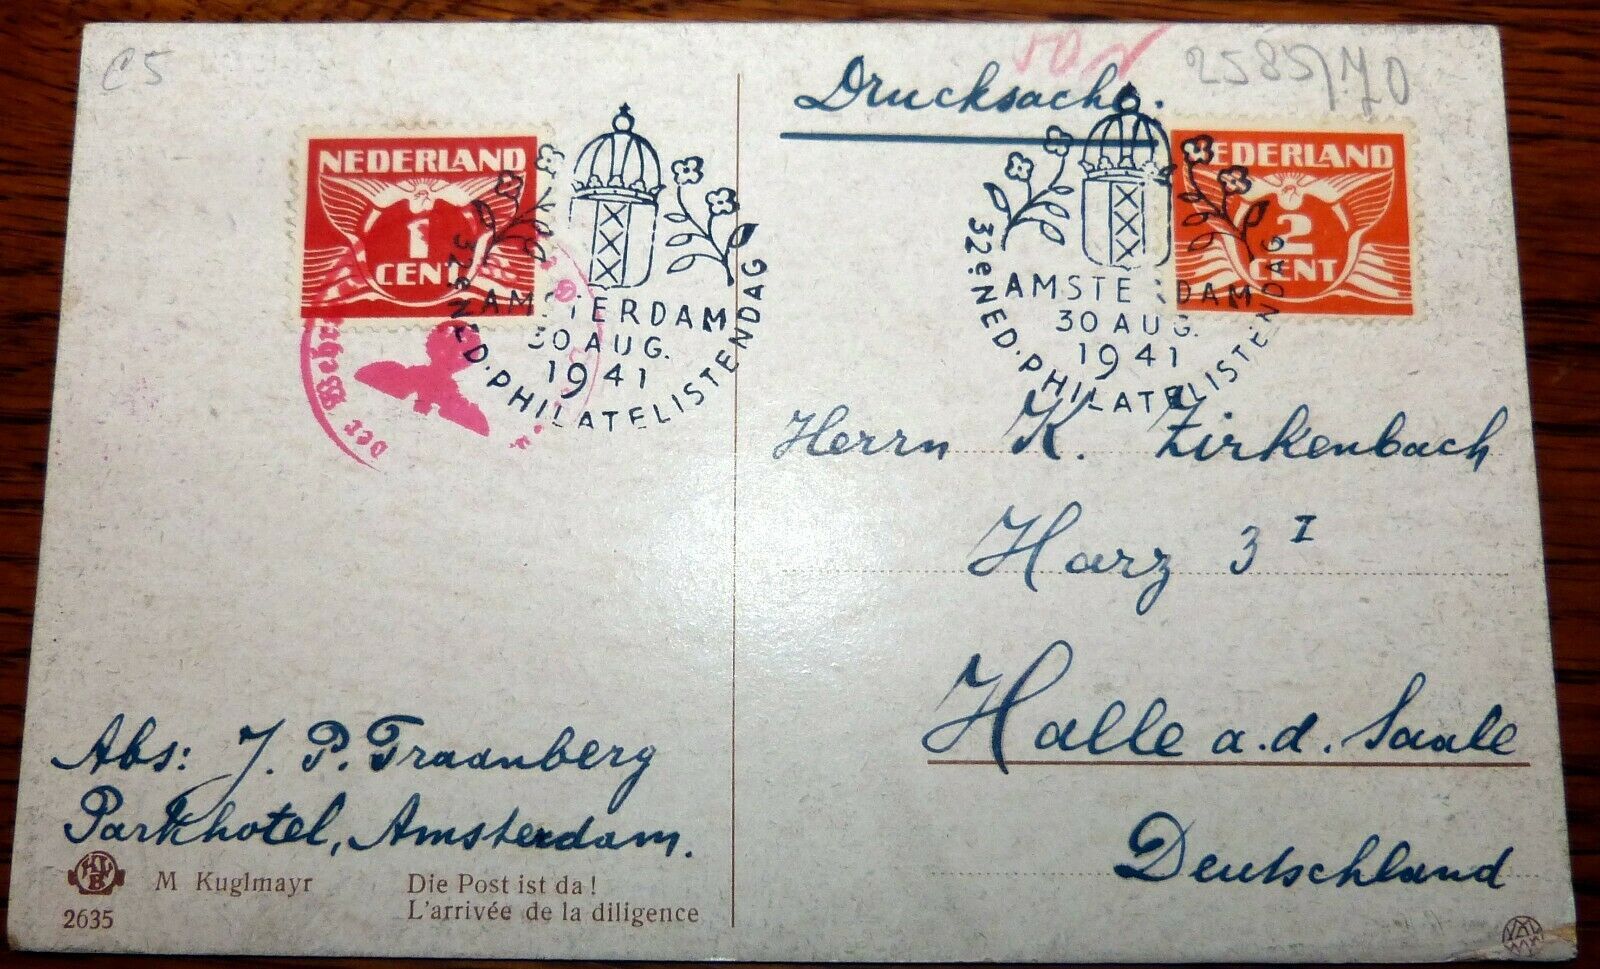 C5
2585/70
Drucksache.
NEDERLAND
1
CENT
NEDERLAND
2
CENT
AMSTERDAM
30 AUG.
1941
32e NED. PHILATELISTENDAG
AMSTERDAM
30 AUG.
1941
32e NED. PHILATELISTENDAG
der Wehr
Herrn K. Zirkenbach
Harz 3 I
Halle a.d. Saale
Deutschland
Abs: J. P. Traanberg
Parkhotel, Amsterdam.
M Kuglmayr
2635
Die Post ist da!
L'arrivée de la diligence